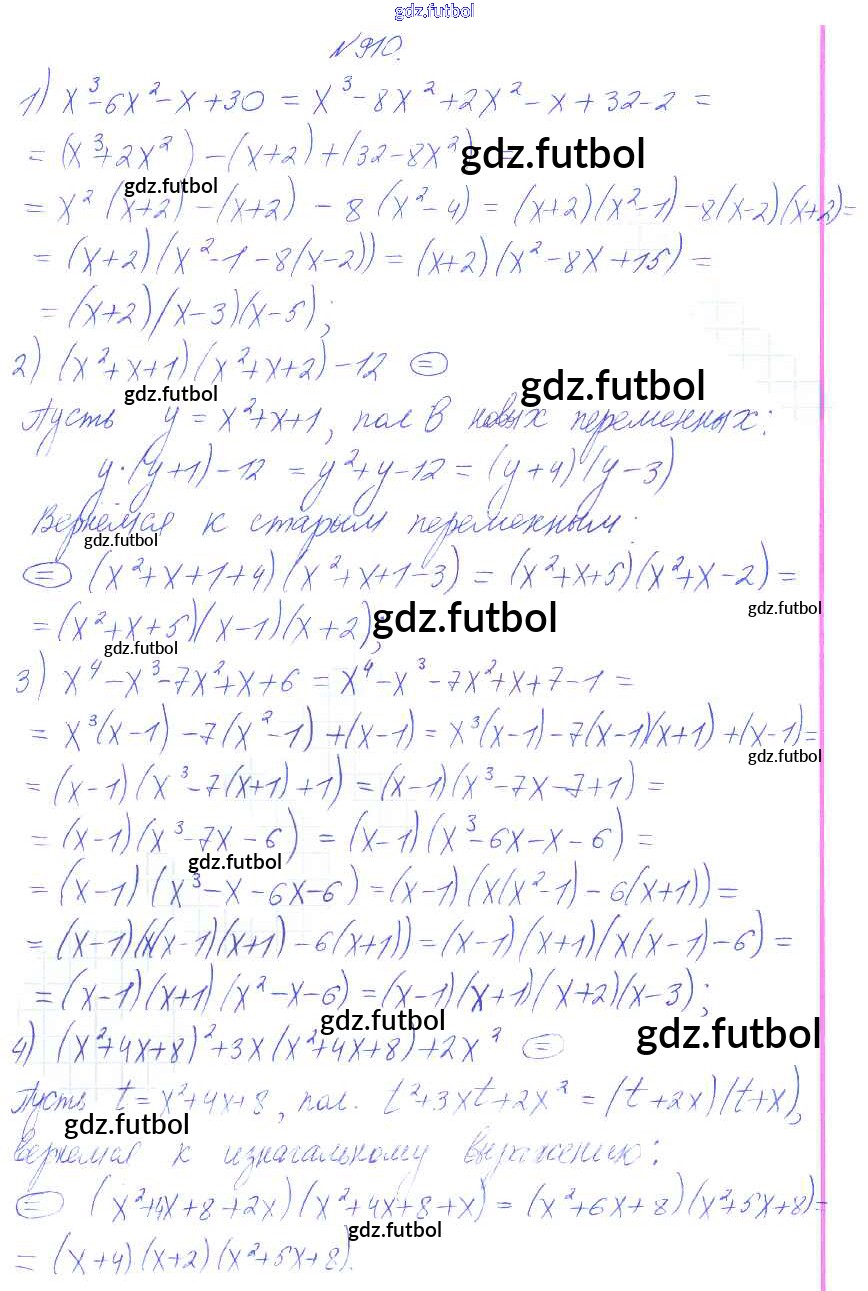 gdz.futbol
№910.
1) x³-6x²-x+30 = x³-8x²+2x²-x+32-2 =
= (x³+2x²)-(x+2)+(32-8x²) =
gdz.futbol
gdz.futbol
= x²(x+2)-(x+2)-8(x²-4) = (x+2)(x²-1)-8(x-2)(x+2)=
= (x+2)(x²-1-8(x-2)) = (x+2)(x²-8x+15) =
= (x+2)(x-3)(x-5);
2) (x²+x+1)(x²+x+2)-12 ⊜
gdz.futbol
gdz.futbol
Пусть y = x²+x+1, пол в новых переменных:
y·(y+1)-12 = y²+y-12 = (y+4)(y-3)
Вернёмся к старым переменным:
gdz.futbol
⊜ (x²+x+1+4)(x²+x+1-3) = (x²+x+5)(x²+x-2) =
gdz.futbol
= (x²+x+5)(x-1)(x+2);
gdz.futbol
gdz.futbol
3) x⁴-x³-7x²+x+6 = x⁴-x³-7x²+x+7-1 =
= x³(x-1)-7(x²-1)+(x-1) = x³(x-1)-7(x-1)(x+1)+(x-1)=
gdz.futbol
= (x-1)(x³-7(x+1)+1) = (x-1)(x³-7x-7+1) =
= (x-1)(x³-7x-6) = (x-1)(x³-6x-x-6) =
gdz.futbol
= (x-1)(x³-x-6x-6) = (x-1)(x(x²-1)-6(x+1)) =
= (x-1)(x(x-1)(x+1)-6(x+1)) = (x-1)(x+1)(x(x-1)-6) =
= (x-1)(x+1)(x²-x-6) = (x-1)(x+1)(x+2)(x-3);
gdz.futbol
gdz.futbol
4) (x²+4x+8)²+3x(x²+4x+8)+2x² ⊜
Пусть t = x²+4x+8, пол. t²+3xt+2x² = (t+2x)(t+x),
gdz.futbol
вернемся к изначальному выражению:
⊜ (x²+4x+8+2x)(x²+4x+8+x) = (x²+6x+8)(x²+5x+8)=
gdz.futbol
= (x+4)(x+2)(x²+5x+8).